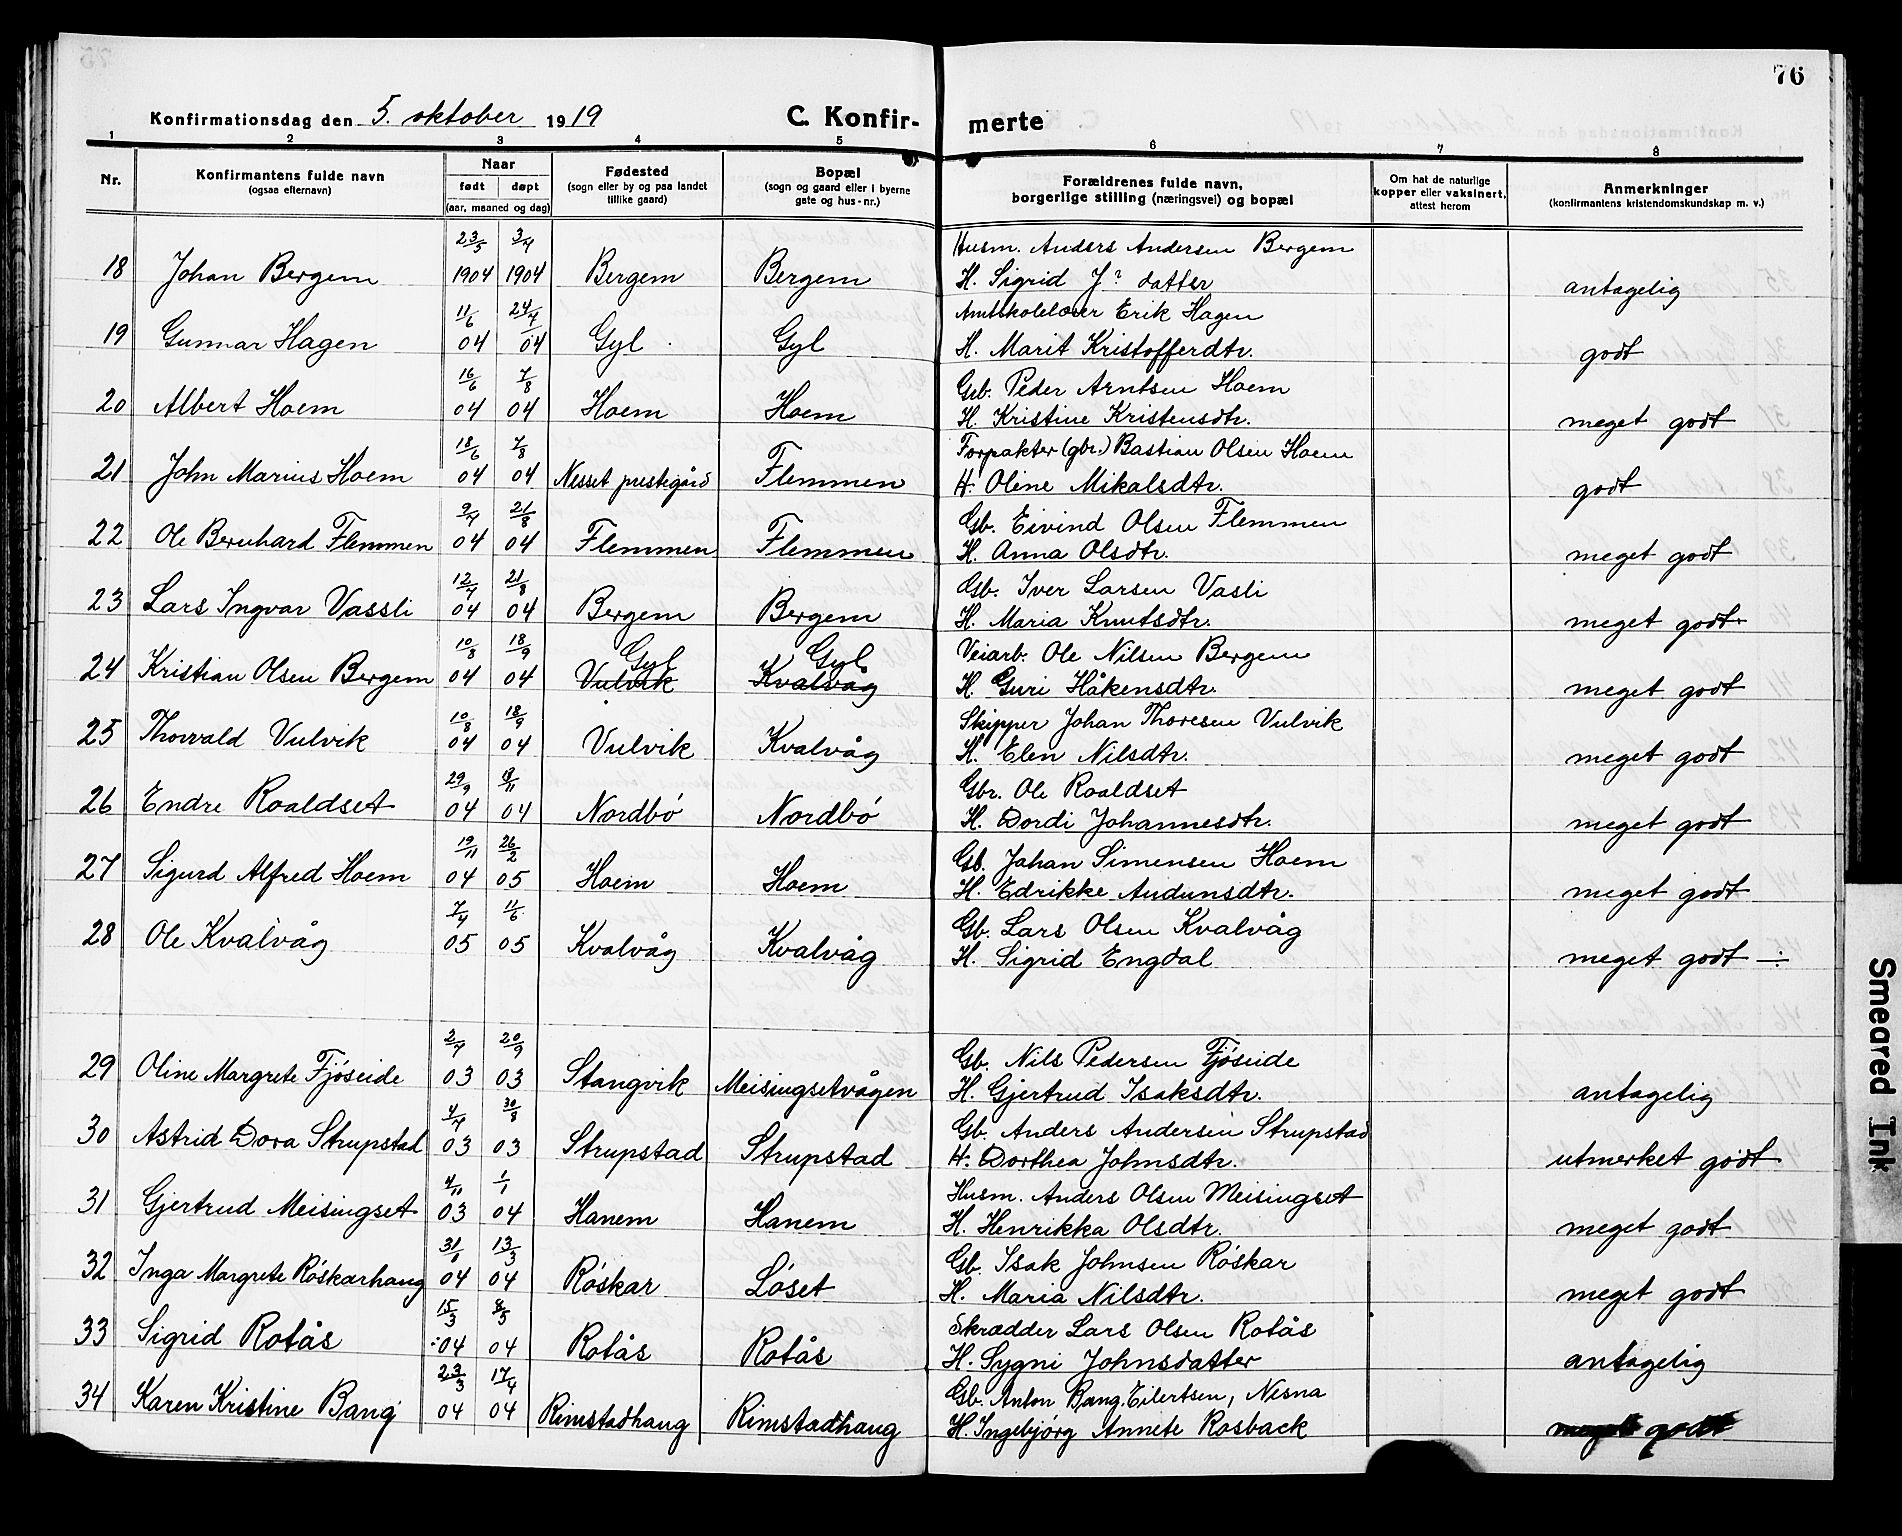 76
Konfirmationsdag den 5. oktober 1919 C. Konfir- merte
1 2 3 4 5 6 7 8
Nr.
Konfirmantens fulde navn
(ogsaa efternavn)
Naar
født døpt
(aar, maaned og dag)
Fødested
(sogn eller by og paa landet
tillike gaard)
Bopæl
(sogn og gaard eller i byerne
gate og hus-nr.)
Forældrenes fulde navn,
borgerlige stilling (næringsvei) og bopæl
Om hat de naturlige
kopper eller vaksinert,
attest herom
Anmerkninger
(konfirmantens kristendomskundskap m. v.)
23/3 3/4 Husm. Anders Andersen Bergem
18 Johan Bergem 1904 1904 Bergem Bergem H. Sigrid J? datter antagelig
11/6 24/7 Amtskolelærer Erik Hagen
19 Gunnar Hagen 04 04 Gyl Gyl H. Marit Kristofferdtr. godt
16/6 7/8 Gb. Peder Arntsen Hoem
20 Albert Hoem 04 04 Hoem Hoem H. Kristine Kristensdtr. meget godt
18/6 7/8 Forpakter (gbr.) Bastian Olsen Hoem
21 John Marius Hoem 04 04 Nesset prestegård Flemmen H. Oline Mikalsdtr. godt
9/7 21/8 Gb. Eivind Olsen Flemmen
22 Ole Bernhard Flemmen 04 04 Flemmen Flemmen H. Anna Olsdtr. meget godt
12/7 21/8 Gb. Iver Larsen Vasli
23 Lars Ingvar Vassli 04 04 Bergem Bergem H. Maria Knutsdtr. meget godt
10/8 18/9 Gyl Gyl Veiarb. Ole Nilsen Bergem
24 Kristian Olsen Bergem 04 04 Vulvik Kvalvåg H. Guri Håkensdtr. meget godt
10/8 18/9 Skipper Johan Thoresen Vulvik
25 Thorvald Vulvik 04 04 Vulvik Kvalvåg H. Elen Nilsdtr. meget godt
29/9 /11 Gbr. Ole Roaldset
26 Endre Roaldset 04 04 Nordbó Nordbó H. Dordi Johannesdtr. meget godt
19/11 26/2 Gb. Johan Simensen Hoem
27 Sigurd Alfred Hoem 04 05 Hoem Hoem H. Edrikke Audunsdtr. meget godt
7/4 11/6 Gb. Lars Olsen Kvalvåg
28 Ole Kvalvåg 05 05 Kvalvåg Kvalvåg H. Sigrid Engdal meget godt ÷
2/7 20/9 Gb. Nils Pedersen Fjóseide
29 Oline Margrete Fjóseide 03 03 Stangvik Meisingsetvågen H. Gjertrud Isaksdtr. antagelig
4/7 30/8 Gb. Anders Andersen Strupstad
30 Astrid Dora Strupstad 03 03 Strupstad Strupstad H. Dorthea Johnsdtr. utmerket godt
4/11 1/1 Husm. Anders Olsen Meisingset
31 Gjertrud Meisingset 03 04 Hanem Hanem H. Henrikka Olsdtr. meget godt
31/1 13/3 Gb. Isak Johnsen Róskar
32 Inga Margrete Róskarhaug 04 04 Róskar Lóset H. Maria Nilsdtr. meget godt
15/3 8/5 Skrædder Lars Olsen Rotås
33 Sigrid Rotås 04 04 Rotås Rotås H. Sygni Johnsdatter antagelig
23/3 17/4 Gb. Anton Bang Eilertsen, Nesna
34 Karen Kristine Bang 04 04 Rimstadhaug Rimstadhaug H. Ingebjørg Annete Rosback meget godt
Smeared Ink